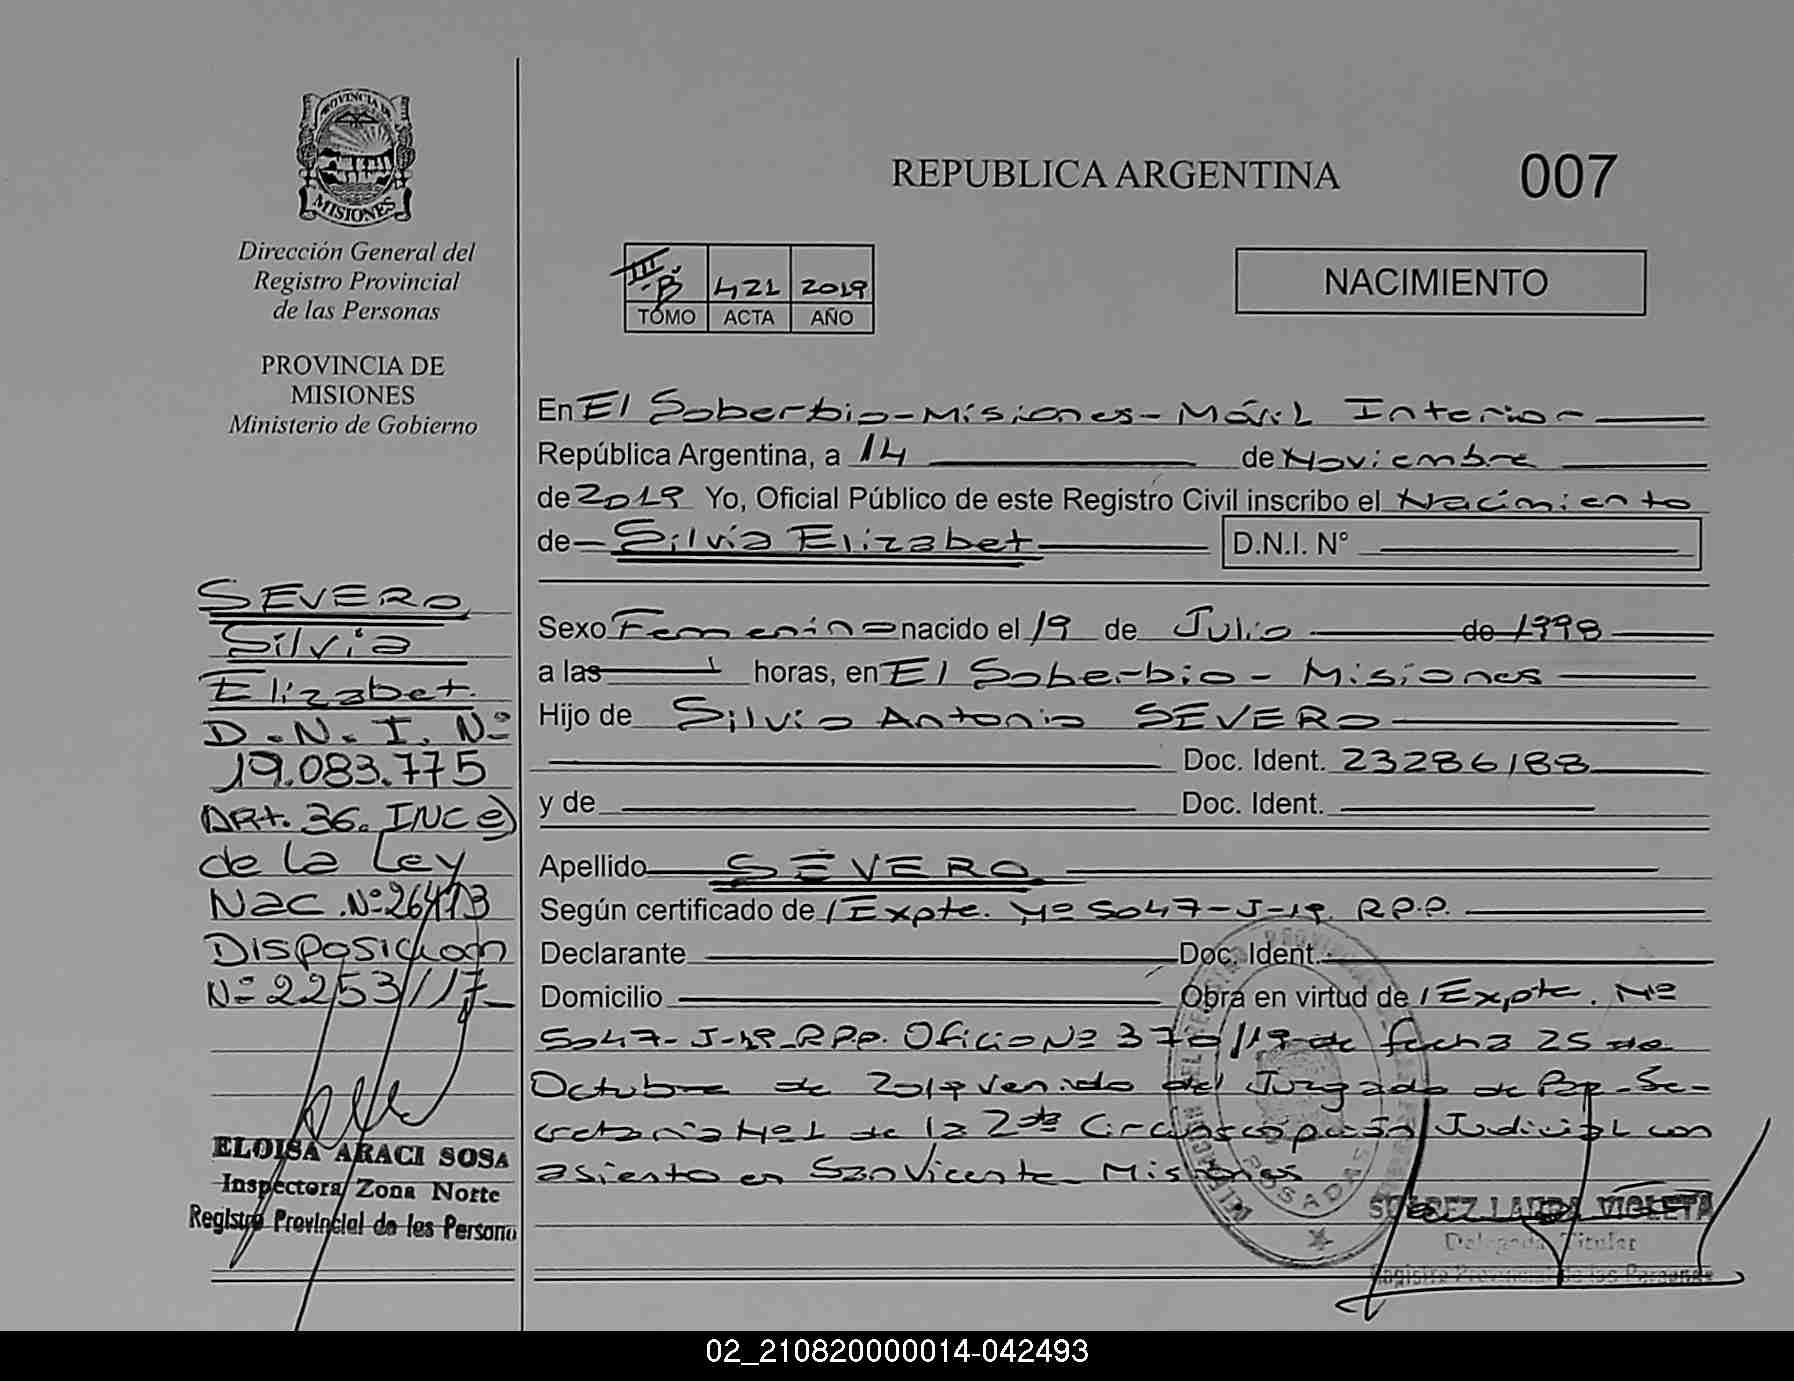 PROVINCIA DE
MISIONES
Dirección General del
Registro Provincial
de las Personas
PROVINCIA DE
MISIONES
Ministerio de Gobierno
REPUBLICA ARGENTINA
007
III B 421 2019
TOMO ACTA AÑO
NACIMIENTO
En El Soberbio - Misiones - Móvil Interior
República Argentina, a 14 de Noviembre
de 2019 Yo, Oficial Público de este Registro Civil inscribo el Nacimiento
de Silvia Elizabet D.N.I. N°
Sexo Femenino nacido el 19 de Julio de 1998
a las horas, en El Soberbio - Misiones
Hijo de Silvio Antonio SEVERO
Doc. Ident. 23286188
y de Doc. Ident.
Apellido SEVERO
Según certificado de / Expte. Nº 5047-J-19. R.P.P.
Declarante Doc. Ident.
Domicilio Obra en virtud de / Expte. Nº
5047-J-19-R.P.P. Oficio Nº 370/19 de fecha 25 de
Octubre de 2019 venido del Juzgado de Paz - Se-
cretaria Nº 1 de la 2da Circunscripción Judicial con
asiento en San Vicente - Misiones
SEVERO
Silvia
Elizabet.
D.N.I. Nº
19.083.775
Art. 36. INC e)
de la Ley
Nac. Nº 26413
Disposicion
Nº 2253/17
ELOISA ARACI SOSA
Inspectora Zona Norte
Registro Provincial de las Persona
POSADAS
SUAREZ LAURA VIOLETA
Delegada Titular
Registro Provincial de las Personas
02_210820000014-042493